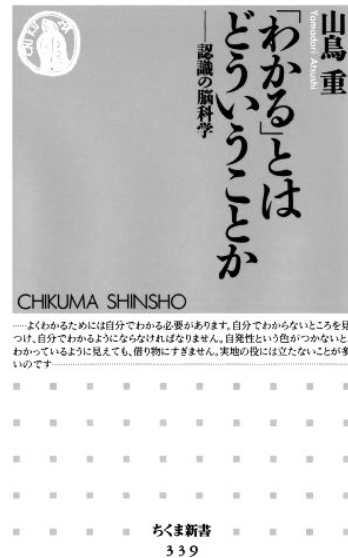 山鳥 重
Yamadori Atsushi
「わかる」とは
どういうことか
──認識の脳科学
CHIKUMA SHINSHO
……よくわかるためには自分でわかる必要があります。自分でわからないところを見
つけ、自分でわかるようにならなければなりません。自発性という色がつかないと、
わかっているように見えても、借り物にすぎません。実地の役には立たないことが多
いのです………
ちくま新書
339